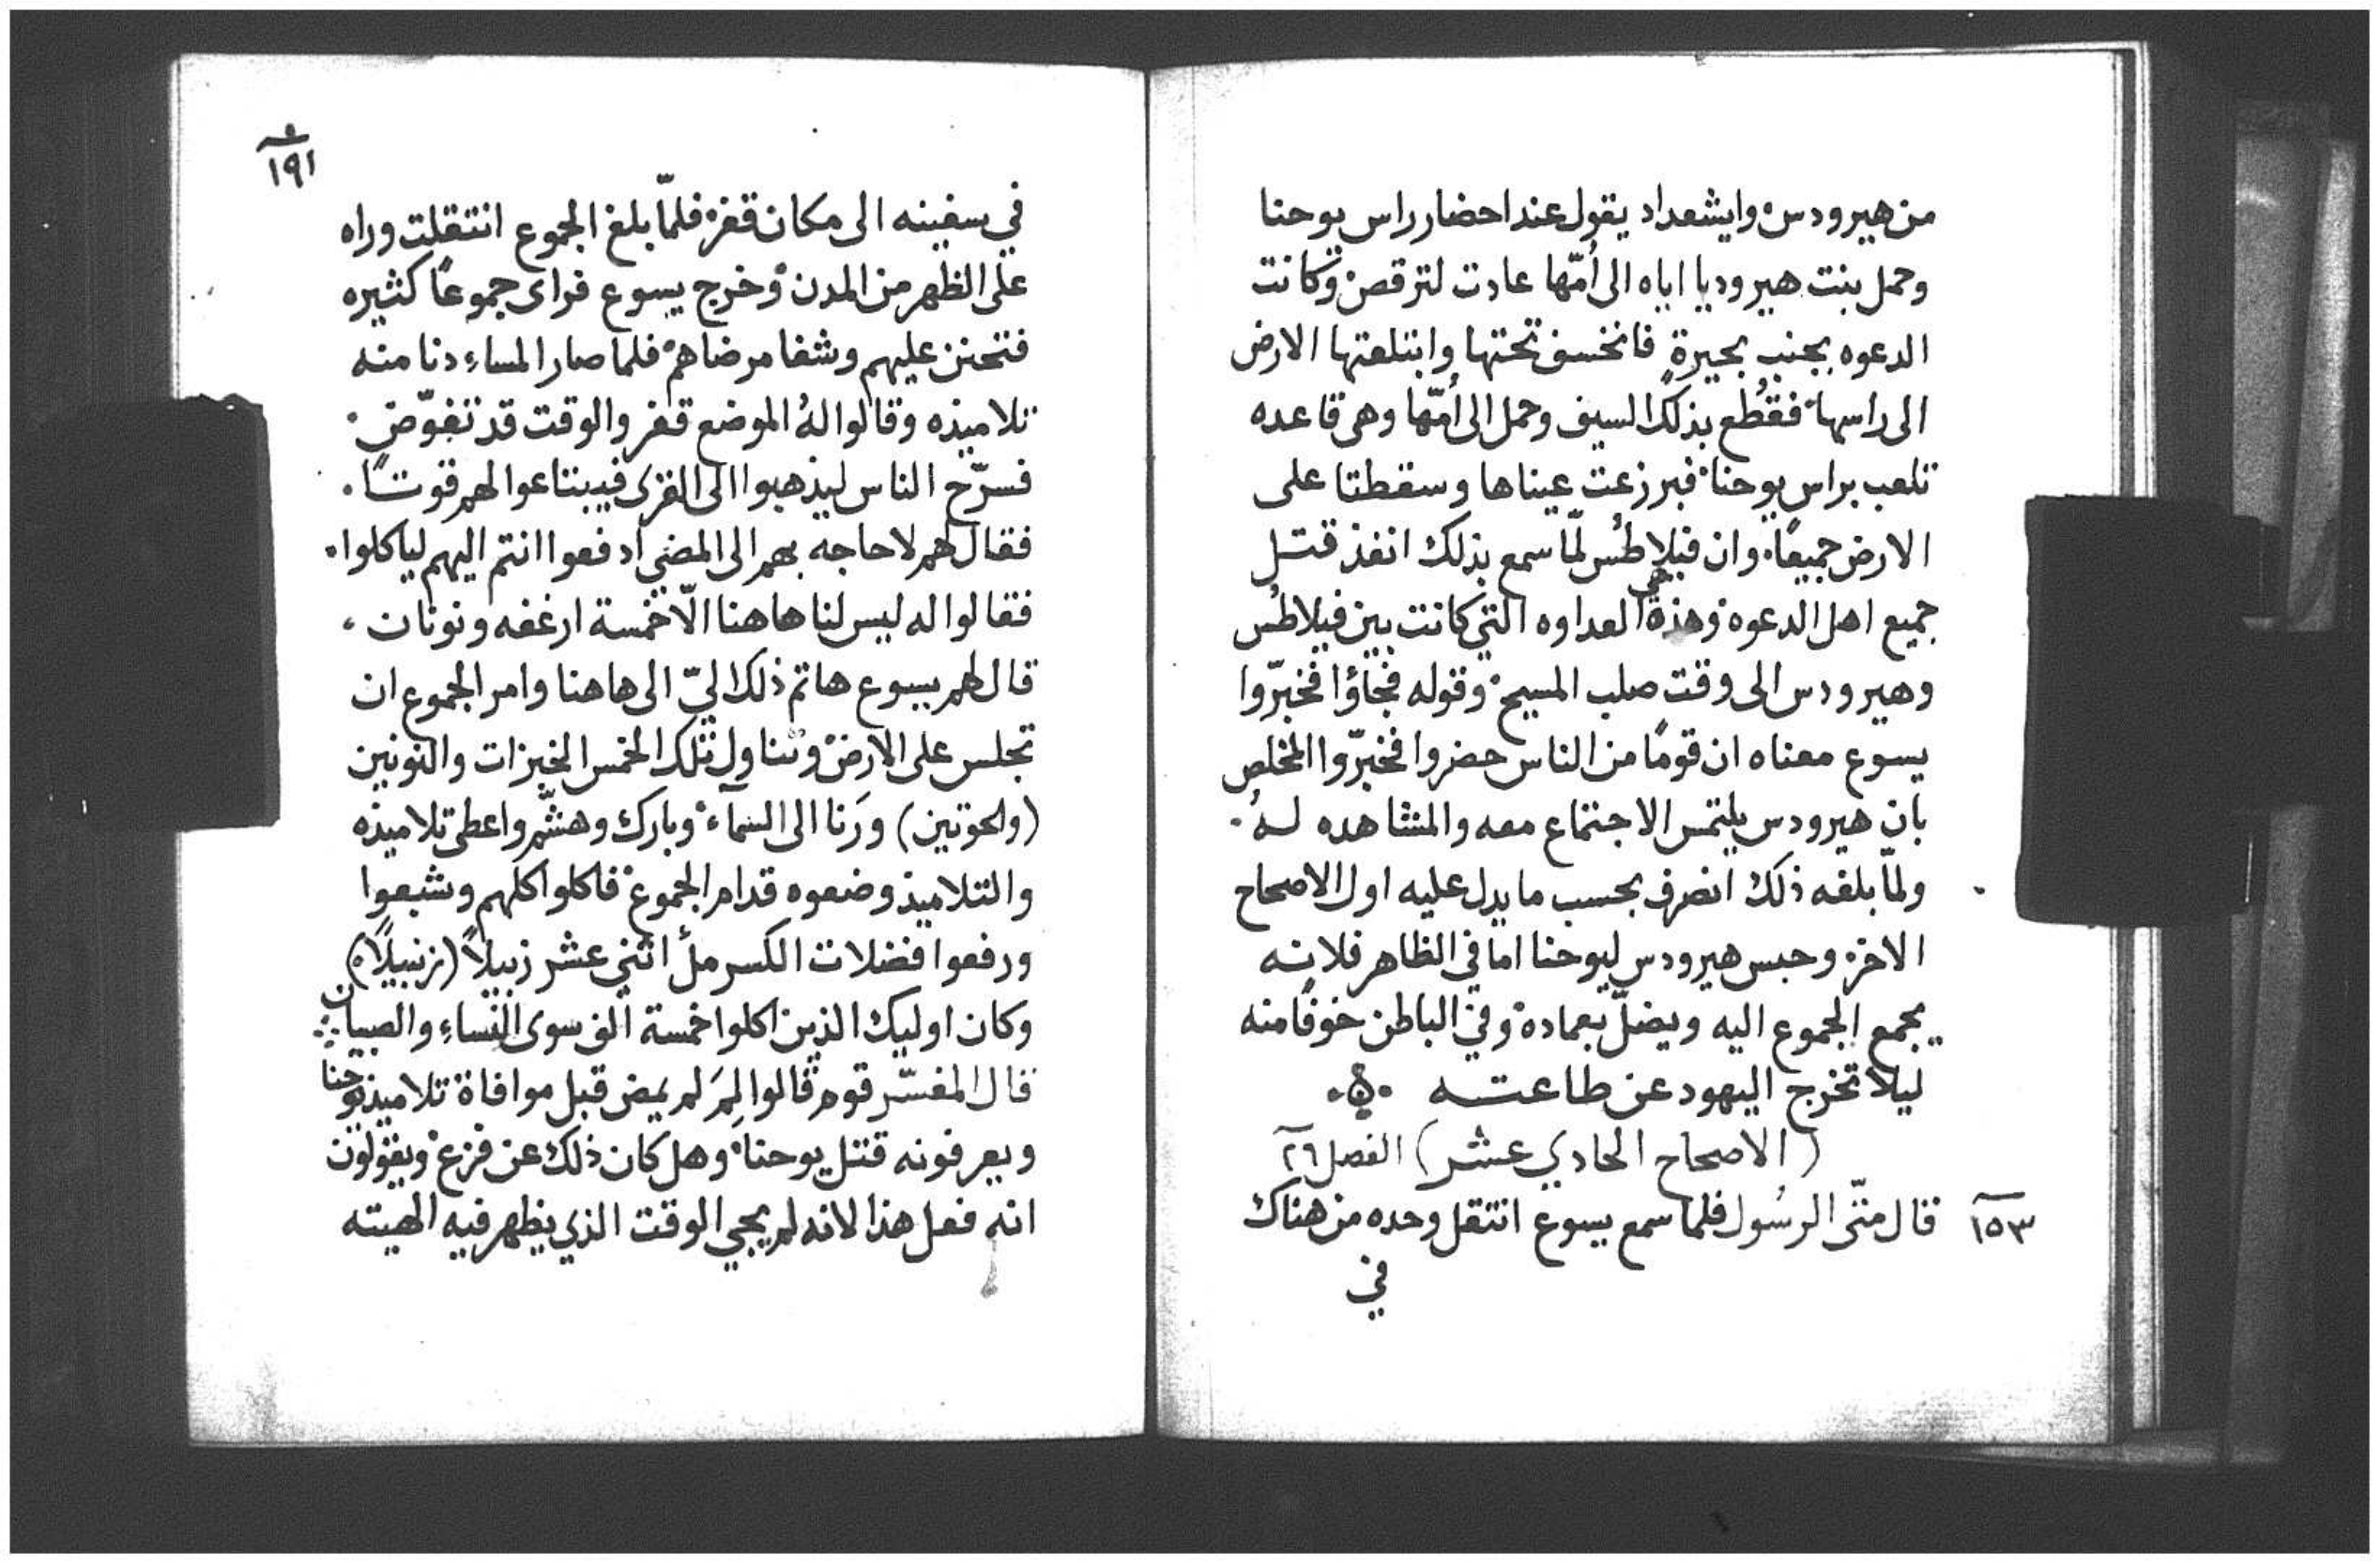 من هيرودس وايشعداد يقول عند احضار راس يوحنا
وحمل بنت هيروديا اياه الى أمّها عادت لترقص وكانت
الدعوه بجنب بحيرةٍ فانخسف تحتها وابتلعتها الارض
الى راسها فقُطع بذلك السيف وحمل الى أمّها وهى قاعده
تلعب براس يوحنا فبرزعت عيناها وسقطتا على
الارض جميعًا. وان فيلاطُس لمّا سمع بذلك انفذ قتل
جميع اهل الدعوه وهذه هى العداوه التي كانت بين فيلاطُس
وهيرودس الى وقت صلب المسيح وقوله فجاؤا فخبّروا
يسوع معناه ان قومًا من الناس حضروا فخبّروا المخلص
بان هيرودس يلتمس الاجتماع معه والمشاهده لهُ.
ولمّا بلغه ذلك انصرف بحسب ما يدل عليه اول الاصحاح
الاخر وحبس هيرودس ليوحنا اما في الظاهر فلانه
يجمع الجموع اليه ويضلّ بعماده وفي الباطن خوفًا منه
ليلا تخرج اليهود عن طاعته
(الاصحاح الحادي عشر) الفصل ٢٦
١٥٣ قال متّى الرسُول فلما سمع يسوع انتقل وحده من هناك
في
١٩١
في سفينه الى مكان قفر فلمّا بلغ الجموع انتقلت وراه
على الظهر من المدن وخرج يسوع فراى جموعًا كثيره
فتحنن عليهم وشفا مرضاهم فلما صار المساءِ دنا منه
تلاميذه وقالوا لهُ الموضع قفر والوقت قد تفوّض
فسرّح الناس ليذهبوا الى القرى فيبتاعوا لهم قوتًا.
فقال لهم لا حاجه بهم الى المضي ادفعوا انتم اليهم لياكلوا.
فقالوا له ليس لنا هاهنا الّا خمسة ارغفه ونونان،
قال لهم يسوع هاتم ذلك اليّ الى هاهنا وامر الجموع ان
تجلس على الارض وتناول تلك الخمس الخبزات والنونين
(والحوتين) ورَنا الى السمآء وبارك وهشّم واعطى تلاميذه
والتلاميذ وضعوه قدام الجموع فاكلوا كلهم وشبعوا
ورفعوا فضلات الكسر ملأ اثني عشر زبيلاً (زنبيلًا)
وكان اوليك الذين اكلوا خمسة الف سوى النساءِ والصبيان
قال المفسّر قوم قالوا لِمَ لم يمض قبل موافاة تلاميذ يوحنا
ويعرفونه قتل يوحنا وهل كان ذلك عن فزع ويقولون
انه فعل هذا لانه لم يجي الوقت الذي يظهر فيه الهيته